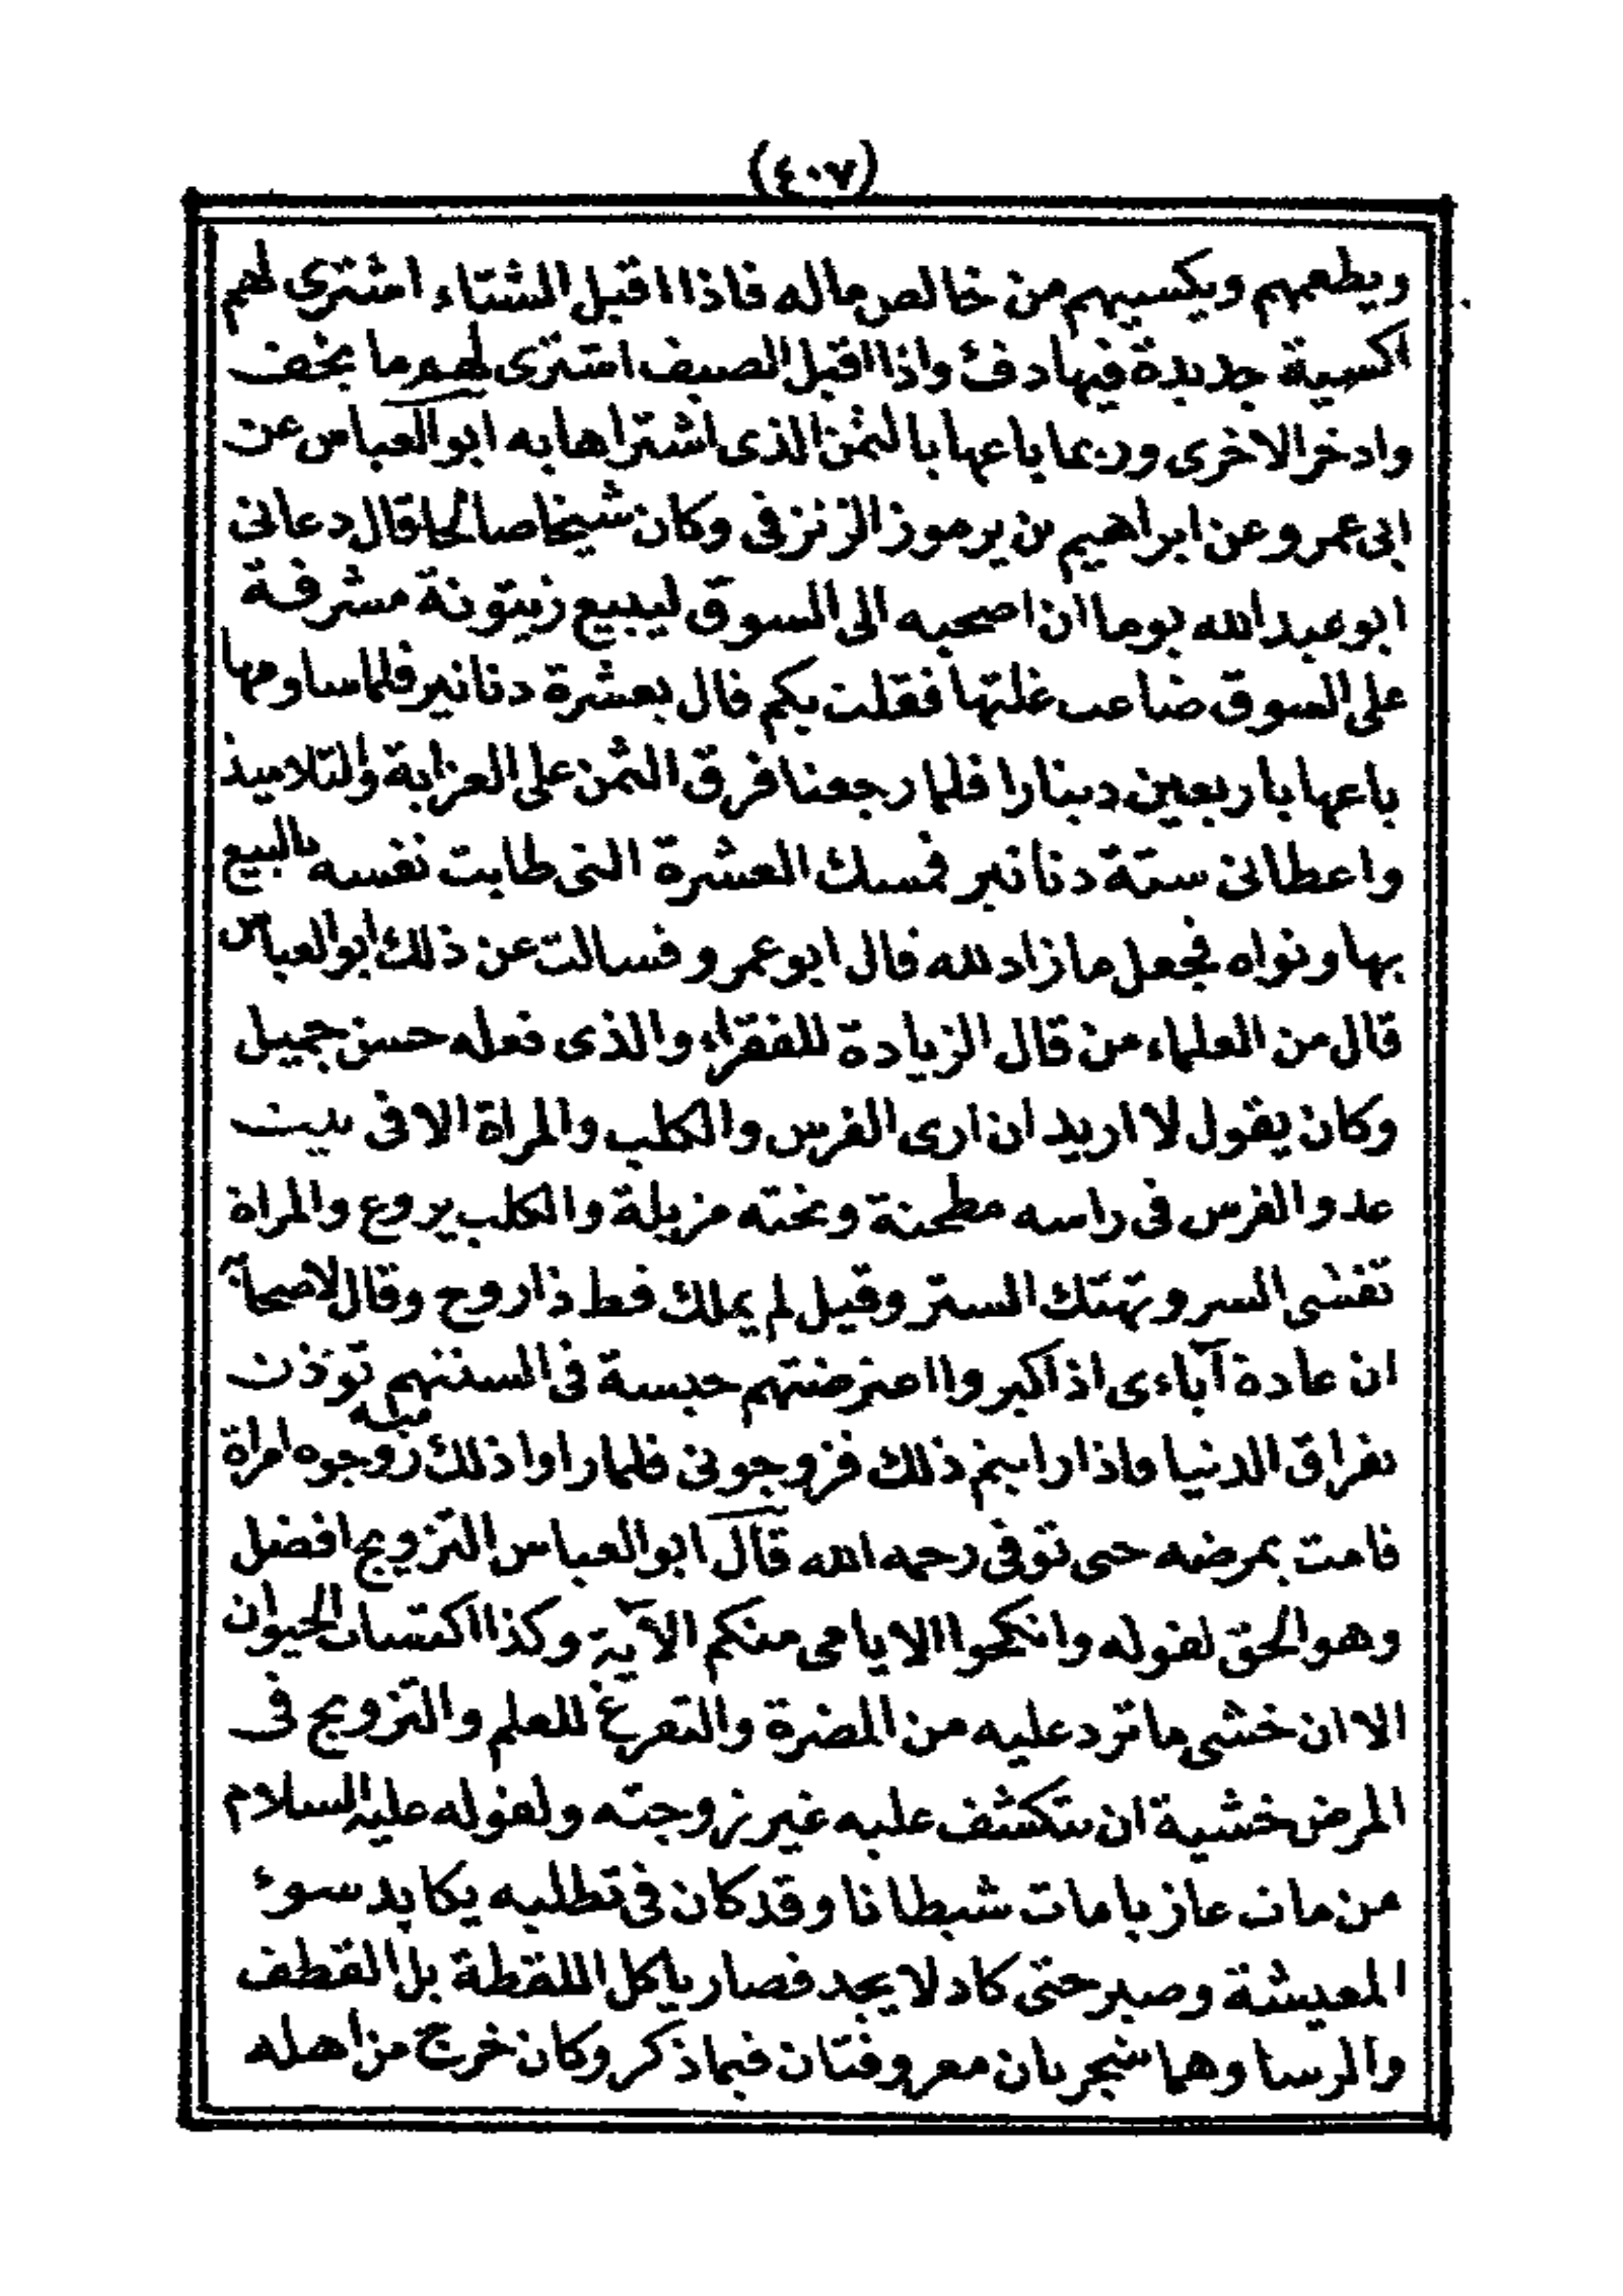 (٤٠٧)
ويطعمهم ويكسيهم من خالص ماله فاذا اقبل الشتاء اشترى لهم
اكسية جديدة فيها دفئ واذا اقبل الصيف اشترى لهم ما يخف
وادخر الاخرى وربما باعها بالثمن الذى اشتراها به ابو العباس عن
ابى عمرو عن ابراهيم بن يرموز الزنزفى وكان شيخا صالحا قال دعانى
ابو عبد الله يوما ان اصحبه الى السوق ليبيع زيتونة مشرفة
على السوق ضاعت غلتها فقلت بكم قال بعشرة دنانير فلما ساومها
باعها باربعين دينارا فلما رجعنا فرق الثمن على العزابة والتلاميذ
واعطانى ستة دنانير فمسك العشرة التى طابت نفسه بالبيع
بها ونواه فجعل ما زاد لله قال ابو عمرو فسالت عن ذلك ابو العباس
قال من العلماء من قال الزيادة للفقراء والذى فعله حسن جميل
وكان يقول لا اريد ان ارى الفرس والكلب والمراة الا فى بيت
عدو الفرس فى راسه مطحنة وتحته مزبلة والكلب يروع والمراة
تفشى السر وتهتك الستر وقيل لم يملك قط ذا روح وقال لاصحابه
ان عادة آباءى اذا كبروا اعترضتهم حبسة فى السنتهم توذن
بفراق الدنيا فاذا رايتم ذلك فزوجونى فلما راوا ذلك منه زوجوه امراة
قامت بمرضه حتى توفى رحمه الله قال ابو العباس التزويج افضل
وهو الحق لقوله وانكحوا الايامى منكم الآية وكذا اكتساب الحيوان
الا ان خشى ما ترد عليه من المضرة والتفرغ للعلم والتزويج فى
المرض خشية ان تتكشف عليه غير زوجته ولقوله عليه السلام
من مات عازبا مات شيطانا وقد كان فى تطلبه يكابد سوء
المعيشة وصبر حتى كاد لا يجد فصار ياكل اللقطة بل القطف
والمرسا وهما شجرتان معروفتان فيما ذكر وكان خرج من اهله